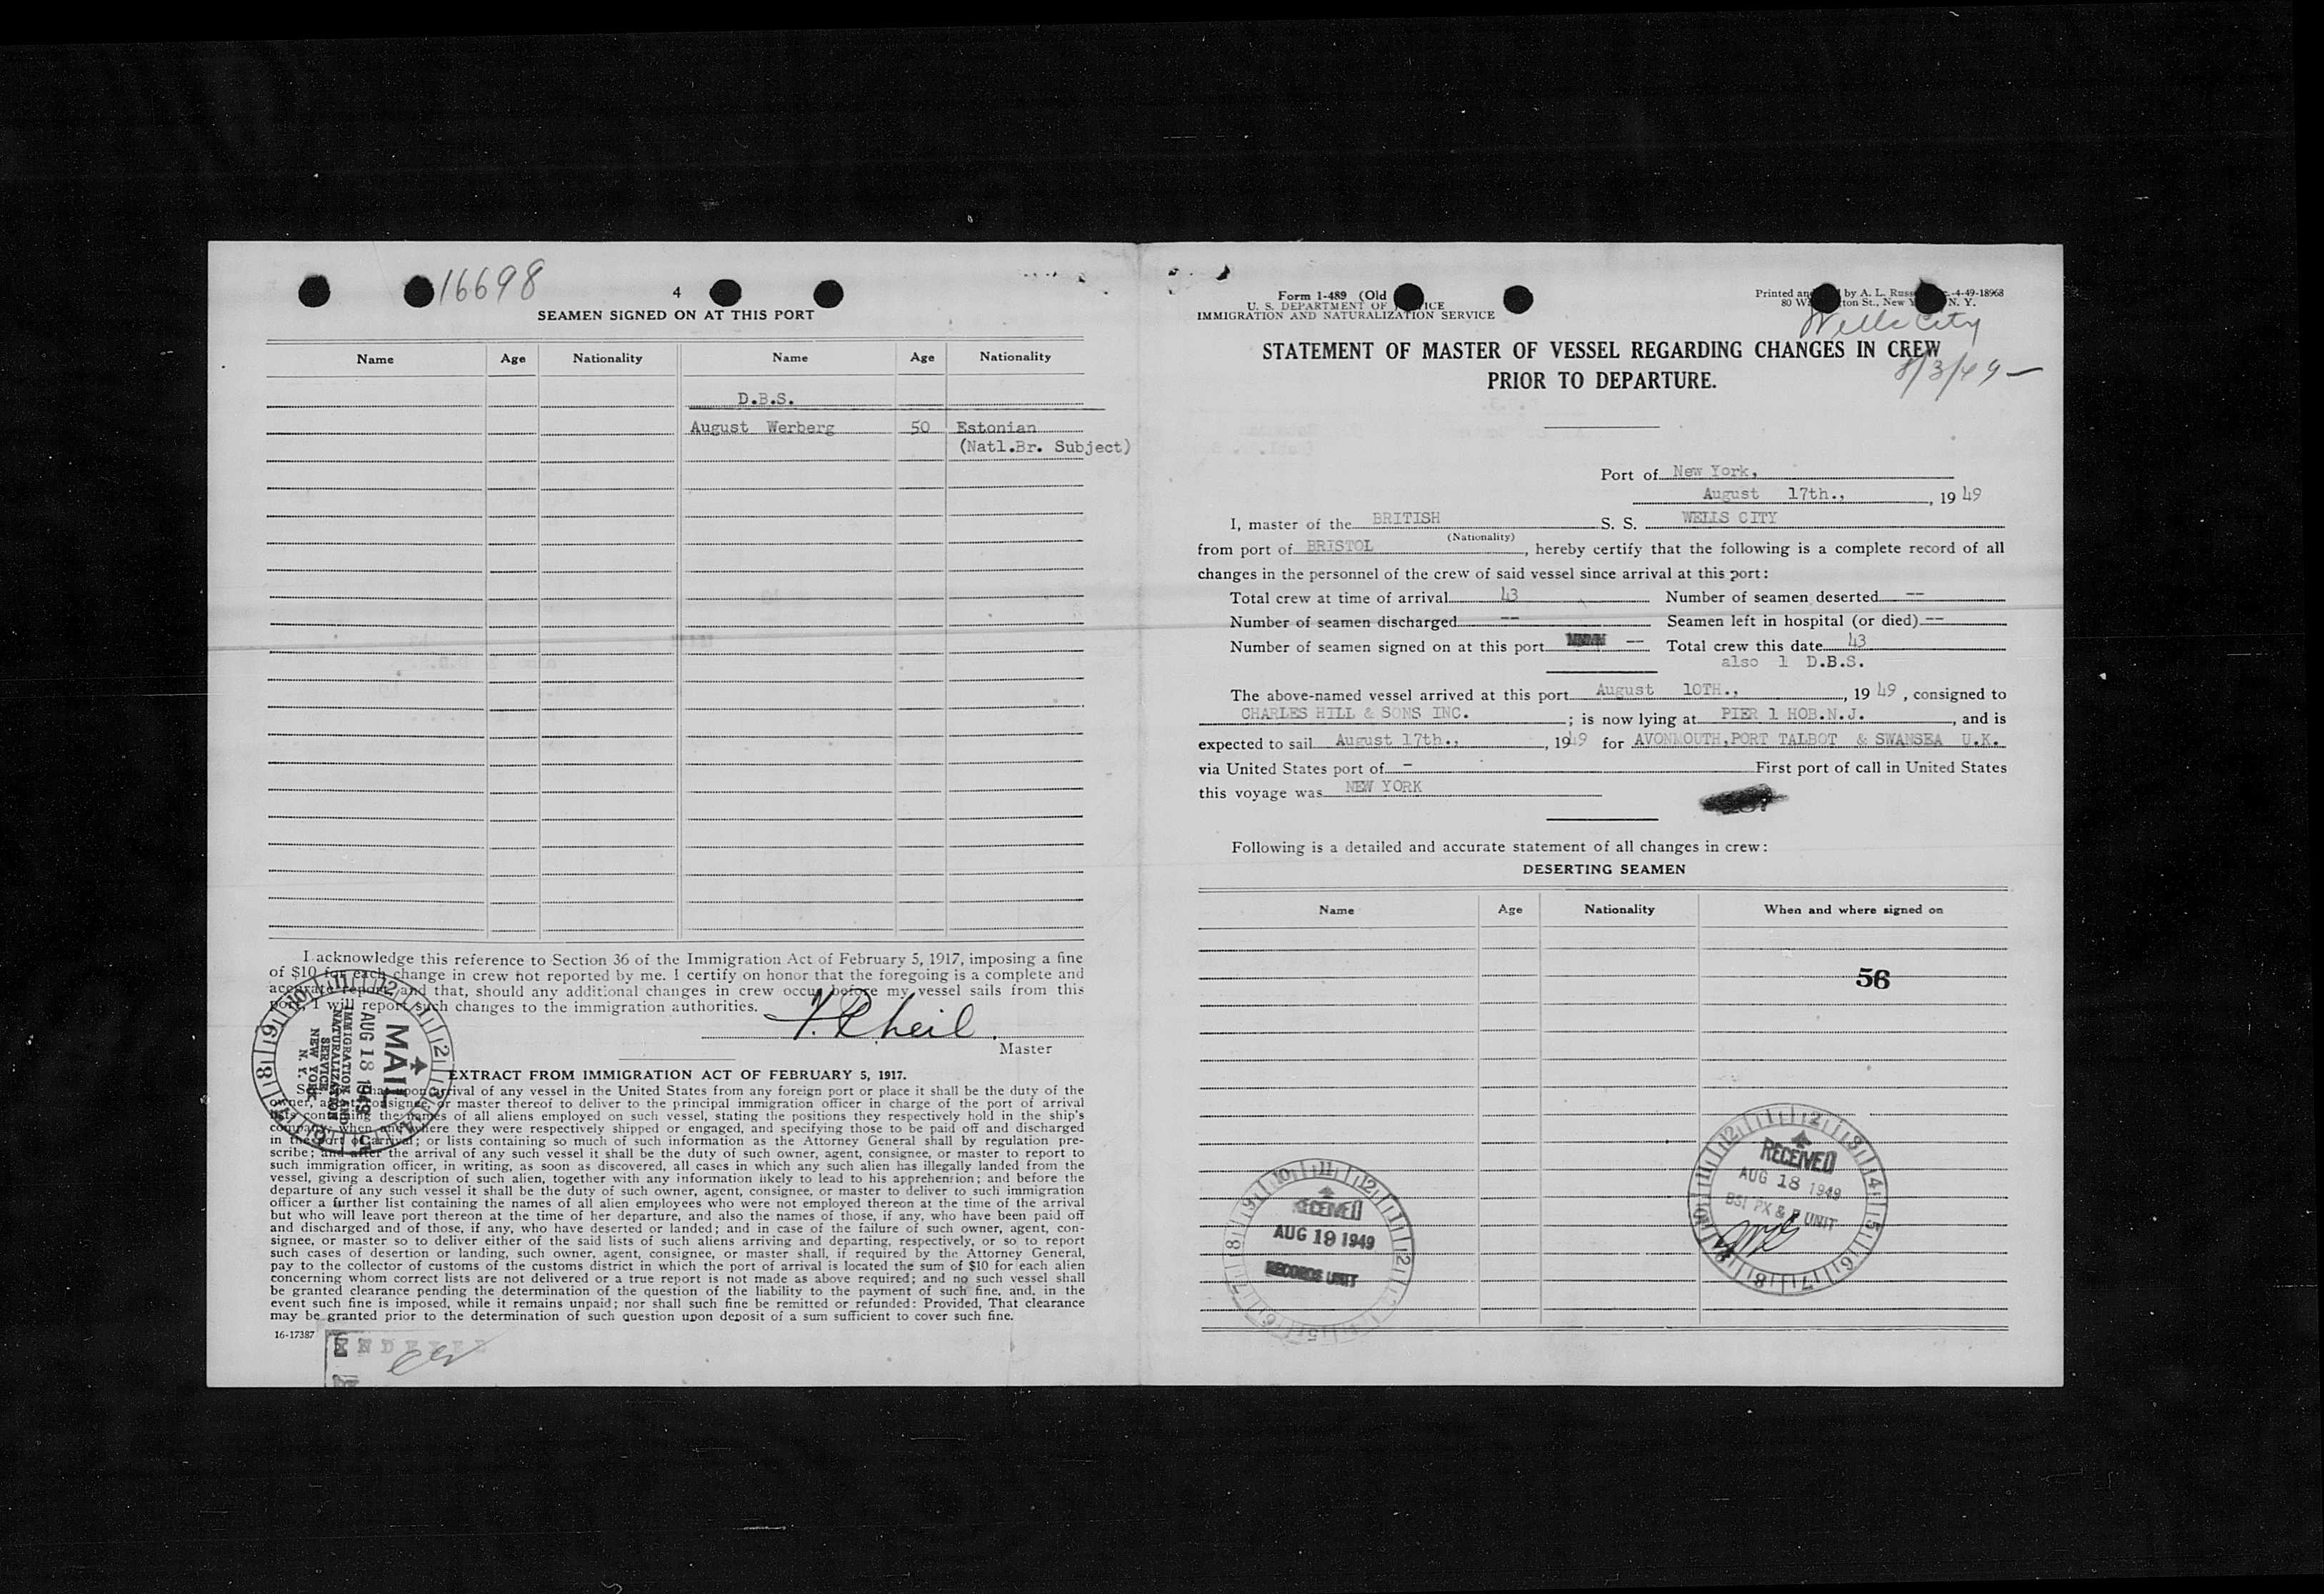 16698
4
SEAMEN SIGNED ON AT THIS PORT
Name Age Nationality Name Age Nationality
D.B.S.
August Werberg 50 Estonian
(Natl.Br. Subject)
I acknowledge this reference to Section 36 of the Immigration Act of February 5, 1917, imposing a fine
of $10 for each change in crew not reported by me. I certify on honor that the foregoing is a complete and
accurate report, and that, should any additional changes in crew occur before my vessel sails from this
port, I will report such changes to the immigration authorities.
Master
EXTRACT FROM IMMIGRATION ACT OF FEBRUARY 5, 1917.
upon arrival of any vessel in the United States from any foreign port or place it shall be the duty of the
owner, agent, consignee, or master thereof to deliver to the principal immigration officer in charge of the port of arrival
lists containing the names of all aliens employed on such vessel, stating the positions they respectively hold in the ship's
company, when and where they were respectively shipped or engaged, and specifying those to be paid off and discharged
in the port of arrival; or lists containing so much of such information as the Attorney General shall by regulation pre-
scribe; and after the arrival of any such vessel it shall be the duty of such owner, agent, consignee, or master to report to
such immigration officer, in writing, as soon as discovered, all cases in which any such alien has illegally landed from the
vessel, giving a description of such alien, together with any information likely to lead to his apprehension; and before the
departure of any such vessel it shall be the duty of such owner, agent, consignee, or master to deliver to such immigration
officer a further list containing the names of all alien employees who were not employed thereon at the time of the arrival
but who will leave port thereon at the time of her departure, and also the names of those, if any, who have been paid off
and discharged and of those, if any, who have deserted or landed; and in case of the failure of such owner, agent, con-
signee, or master so to deliver either of the said lists of such aliens arriving and departing, respectively, or so to report
such cases of desertion or landing, such owner, agent, consignee, or master shall, if required by the Attorney General,
pay to the collector of customs of the customs district in which the port of arrival is located the sum of $10 for each alien
concerning whom correct lists are not delivered or a true report is not made as above required; and no such vessel shall
be granted clearance pending the determination of the question of the liability to the payment of such fine, and, in the
event such fine is imposed, while it remains unpaid; nor shall such fine be remitted or refunded: Provided, That clearance
may be granted prior to the determination of such question upon deposit of a sum sufficient to cover such fine.
16-17387
MAIL
AUG 18 1949
IMMIGRATION AND
NATURALIZATION
SERVICE
NEW YORK
N. Y.
Form 1-489 (Old
U. S. DEPARTMENT OF JUSTICE
IMMIGRATION AND NATURALIZATION SERVICE
Printed and by A. L. Russ -4-49-18968
80 W ton St., New Y N. Y.
Wells City
8/3/49
STATEMENT OF MASTER OF VESSEL REGARDING CHANGES IN CREW
PRIOR TO DEPARTURE.
Port of New York,
August 17th., 1949
I, master of the BRITISH S. S. WELLS CITY
(Nationality)
from port of BRISTOL, hereby certify that the following is a complete record of all
changes in the personnel of the crew of said vessel since arrival at this port:
Total crew at time of arrival 43 Number of seamen deserted --
Number of seamen discharged -- Seamen left in hospital (or died) --
Number of seamen signed on at this port -- Total crew this date 43
also 1 D.B.S.
The above-named vessel arrived at this port August 10TH., 1949, consigned to
CHARLES HILL & SONS INC. ; is now lying at PIER 1 HOB.N.J. , and is
expected to sail August 17th., 1949 for AVONMOUTH,PORT TALBOT & SWANSEA U.K.
via United States port of - First port of call in United States
this voyage was NEW YORK
Following is a detailed and accurate statement of all changes in crew:
DESERTING SEAMEN
Name Age Nationality When and where signed on
56
RECEIVED
AUG 18 1949
BSI PX & P UNIT
RECEIVED
AUG 19 1949
RECORDS UNIT